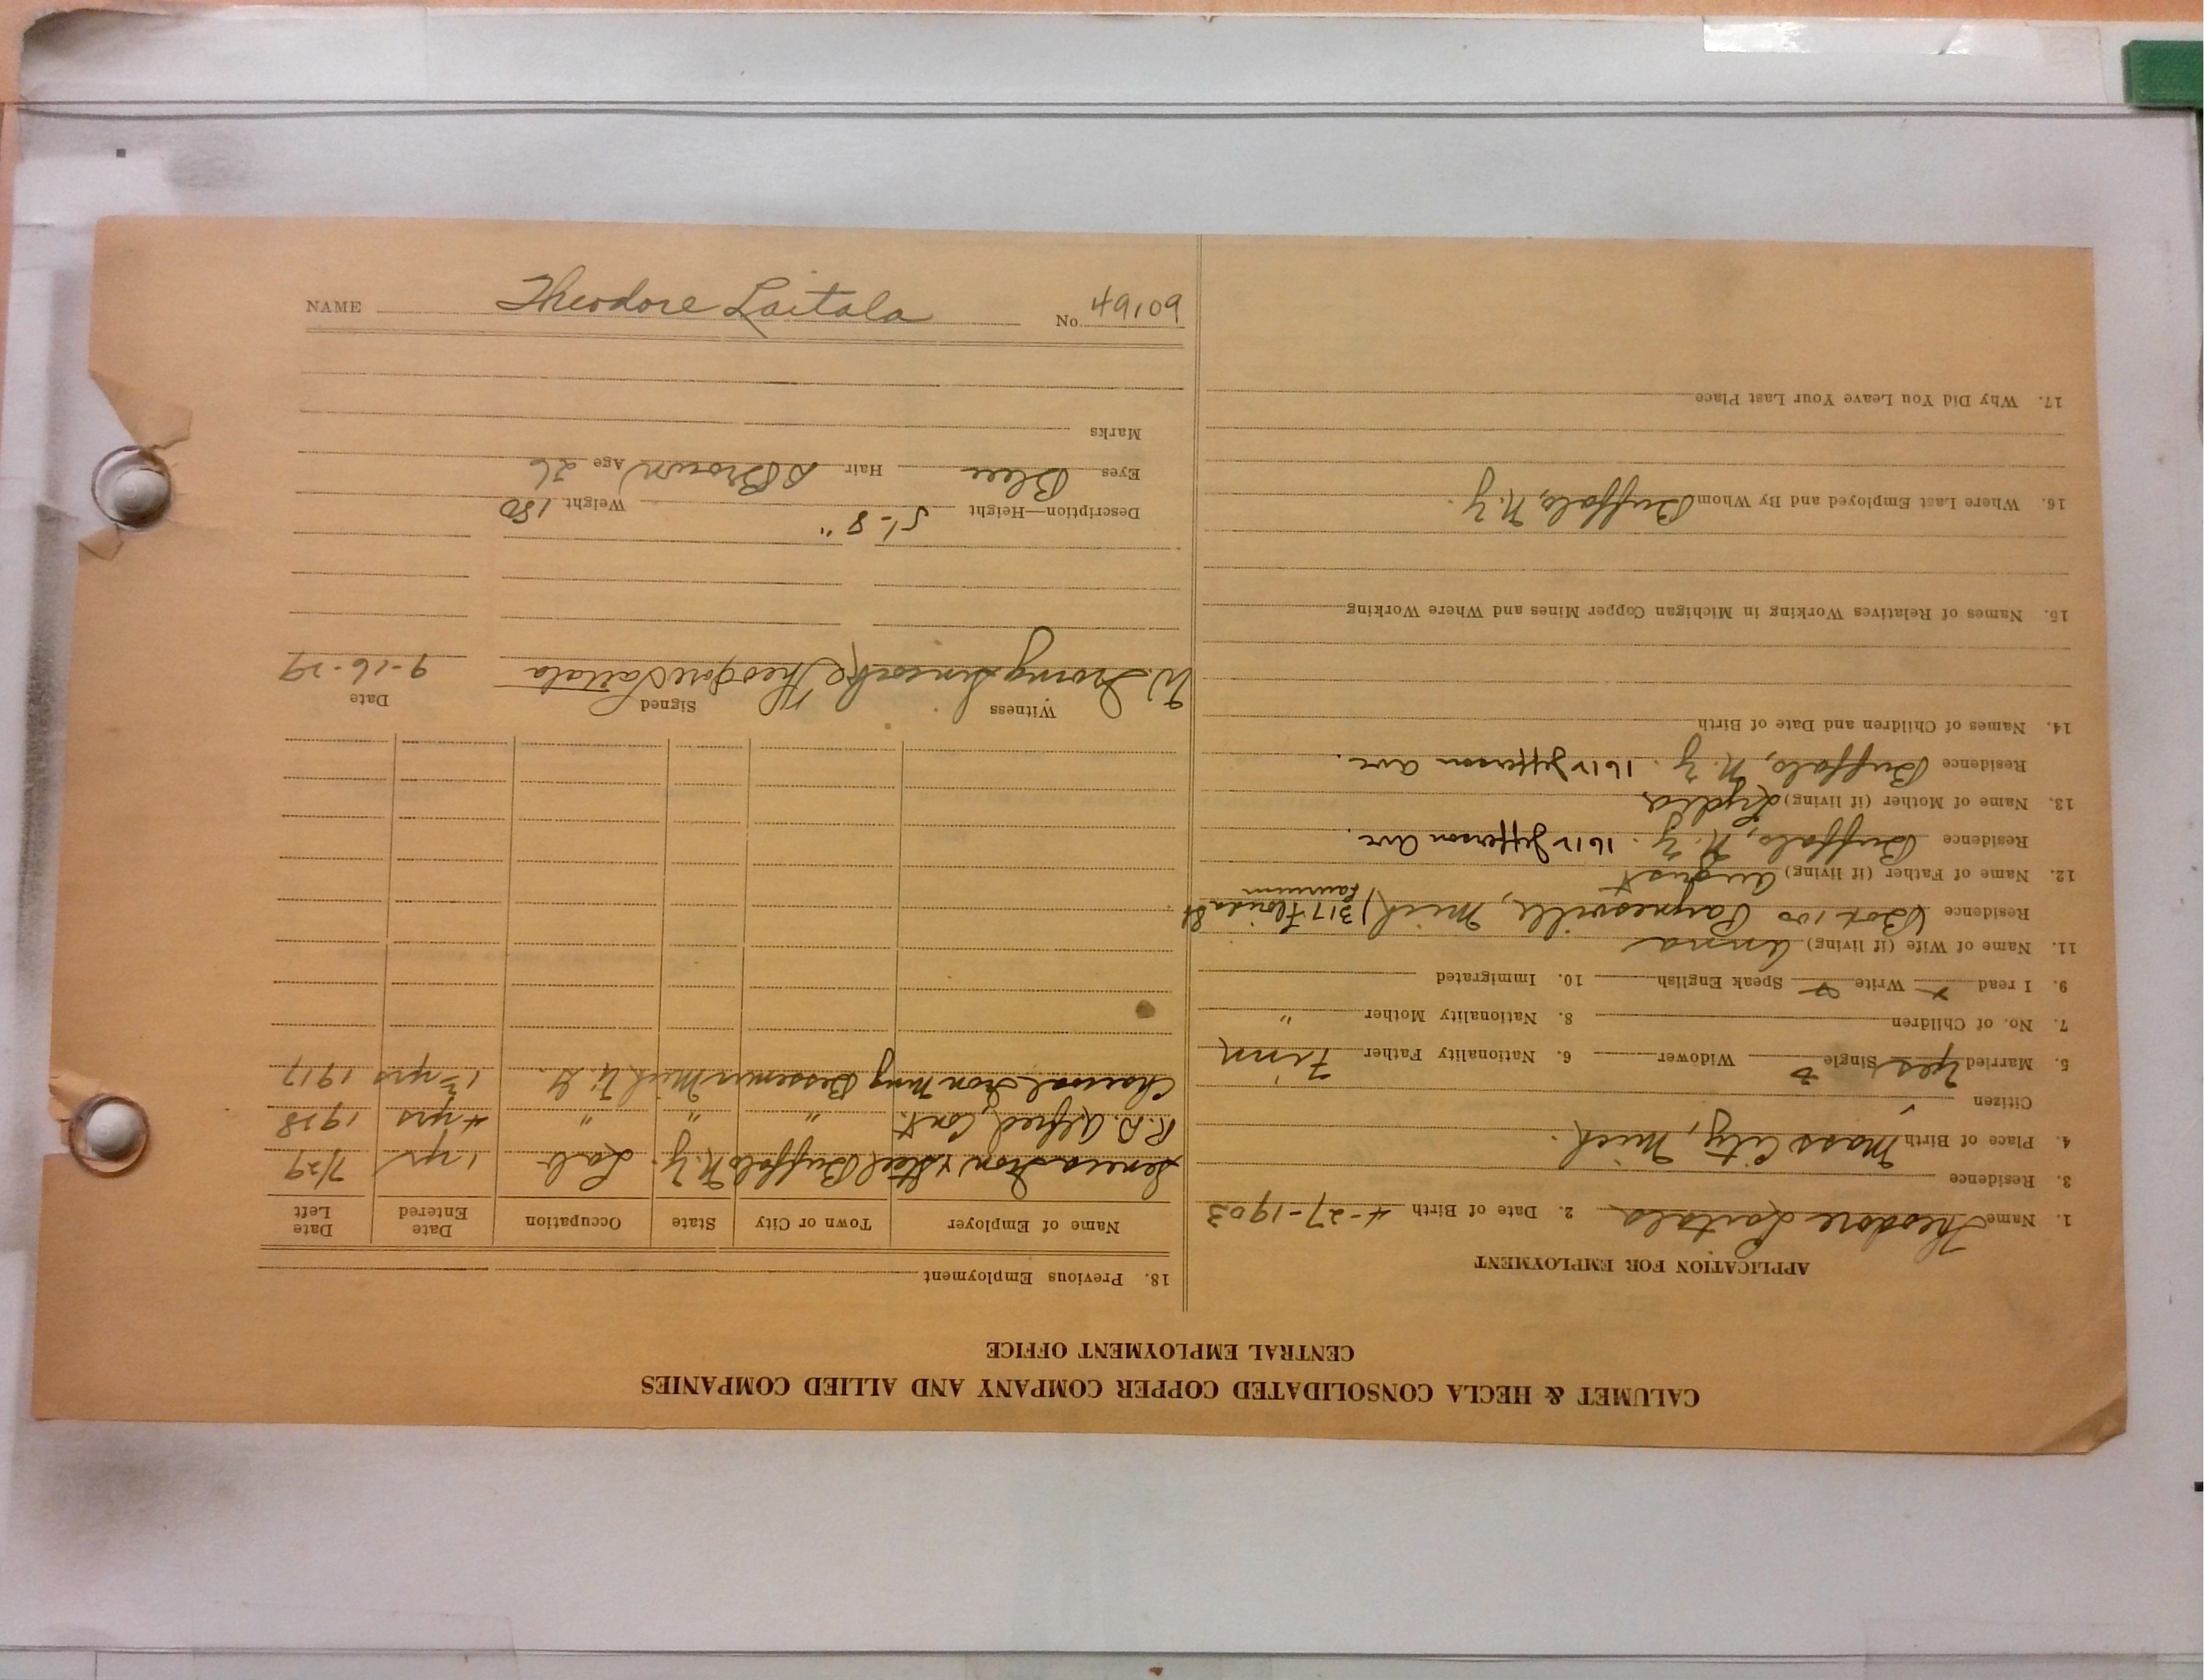 NAME Theodore Laitala No. 49109
CALUMET & HECLA CONSOLIDATED COPPER COMPANY AND ALLIED COMPANIES
CENTRAL EMPLOYMENT OFFICE
APPLICATION FOR EMPLOYMENT
1. Name Theodore Laitala 2. Date of Birth 4-27-1903
3. Residence
4. Place of Birth Mass City, Mich.
Citizen
5. Married Yes Single Widower 6. Nationality Father Finn
7. No. of Children 8. Nationality Mother "
9. I read Write Speak English 10. Immigrated
11. Name of Wife (if living) Anna
Residence (Box 100 Paynesville, Mich) 317 Florida St
Laurium
12. Name of Father (if living) August
Residence Buffalo, N.Y. 1612 Jefferson Ave.
13. Name of Mother (if living) Lydia
Residence Buffalo, N.Y. 1612 Jefferson Ave.
14. Names of Children and Date of Birth
15. Names of Relatives Working in Michigan Copper Mines and Where Working
16. Where Last Employed and By Whom Buffalo, N.Y.
17. Why Did You Leave Your Last Place
18. Previous Employment
Name of Employer Town or City State Occupation Date Entered Date Left
Seneca Iron & Steel Buffalo N.Y. Lab 1 yr 7/29
R.B. Alfred, Cont. " " " 4 yrs 1928
Charcoal Iron Mng Bessemer Mich U.G. yrs 1917
Witness Signed Date
W. Theodore Laitala 9-16-29
Description—Height 5'-8" Weight 180
Eyes Blue Hair D Brown Age 26
Marks